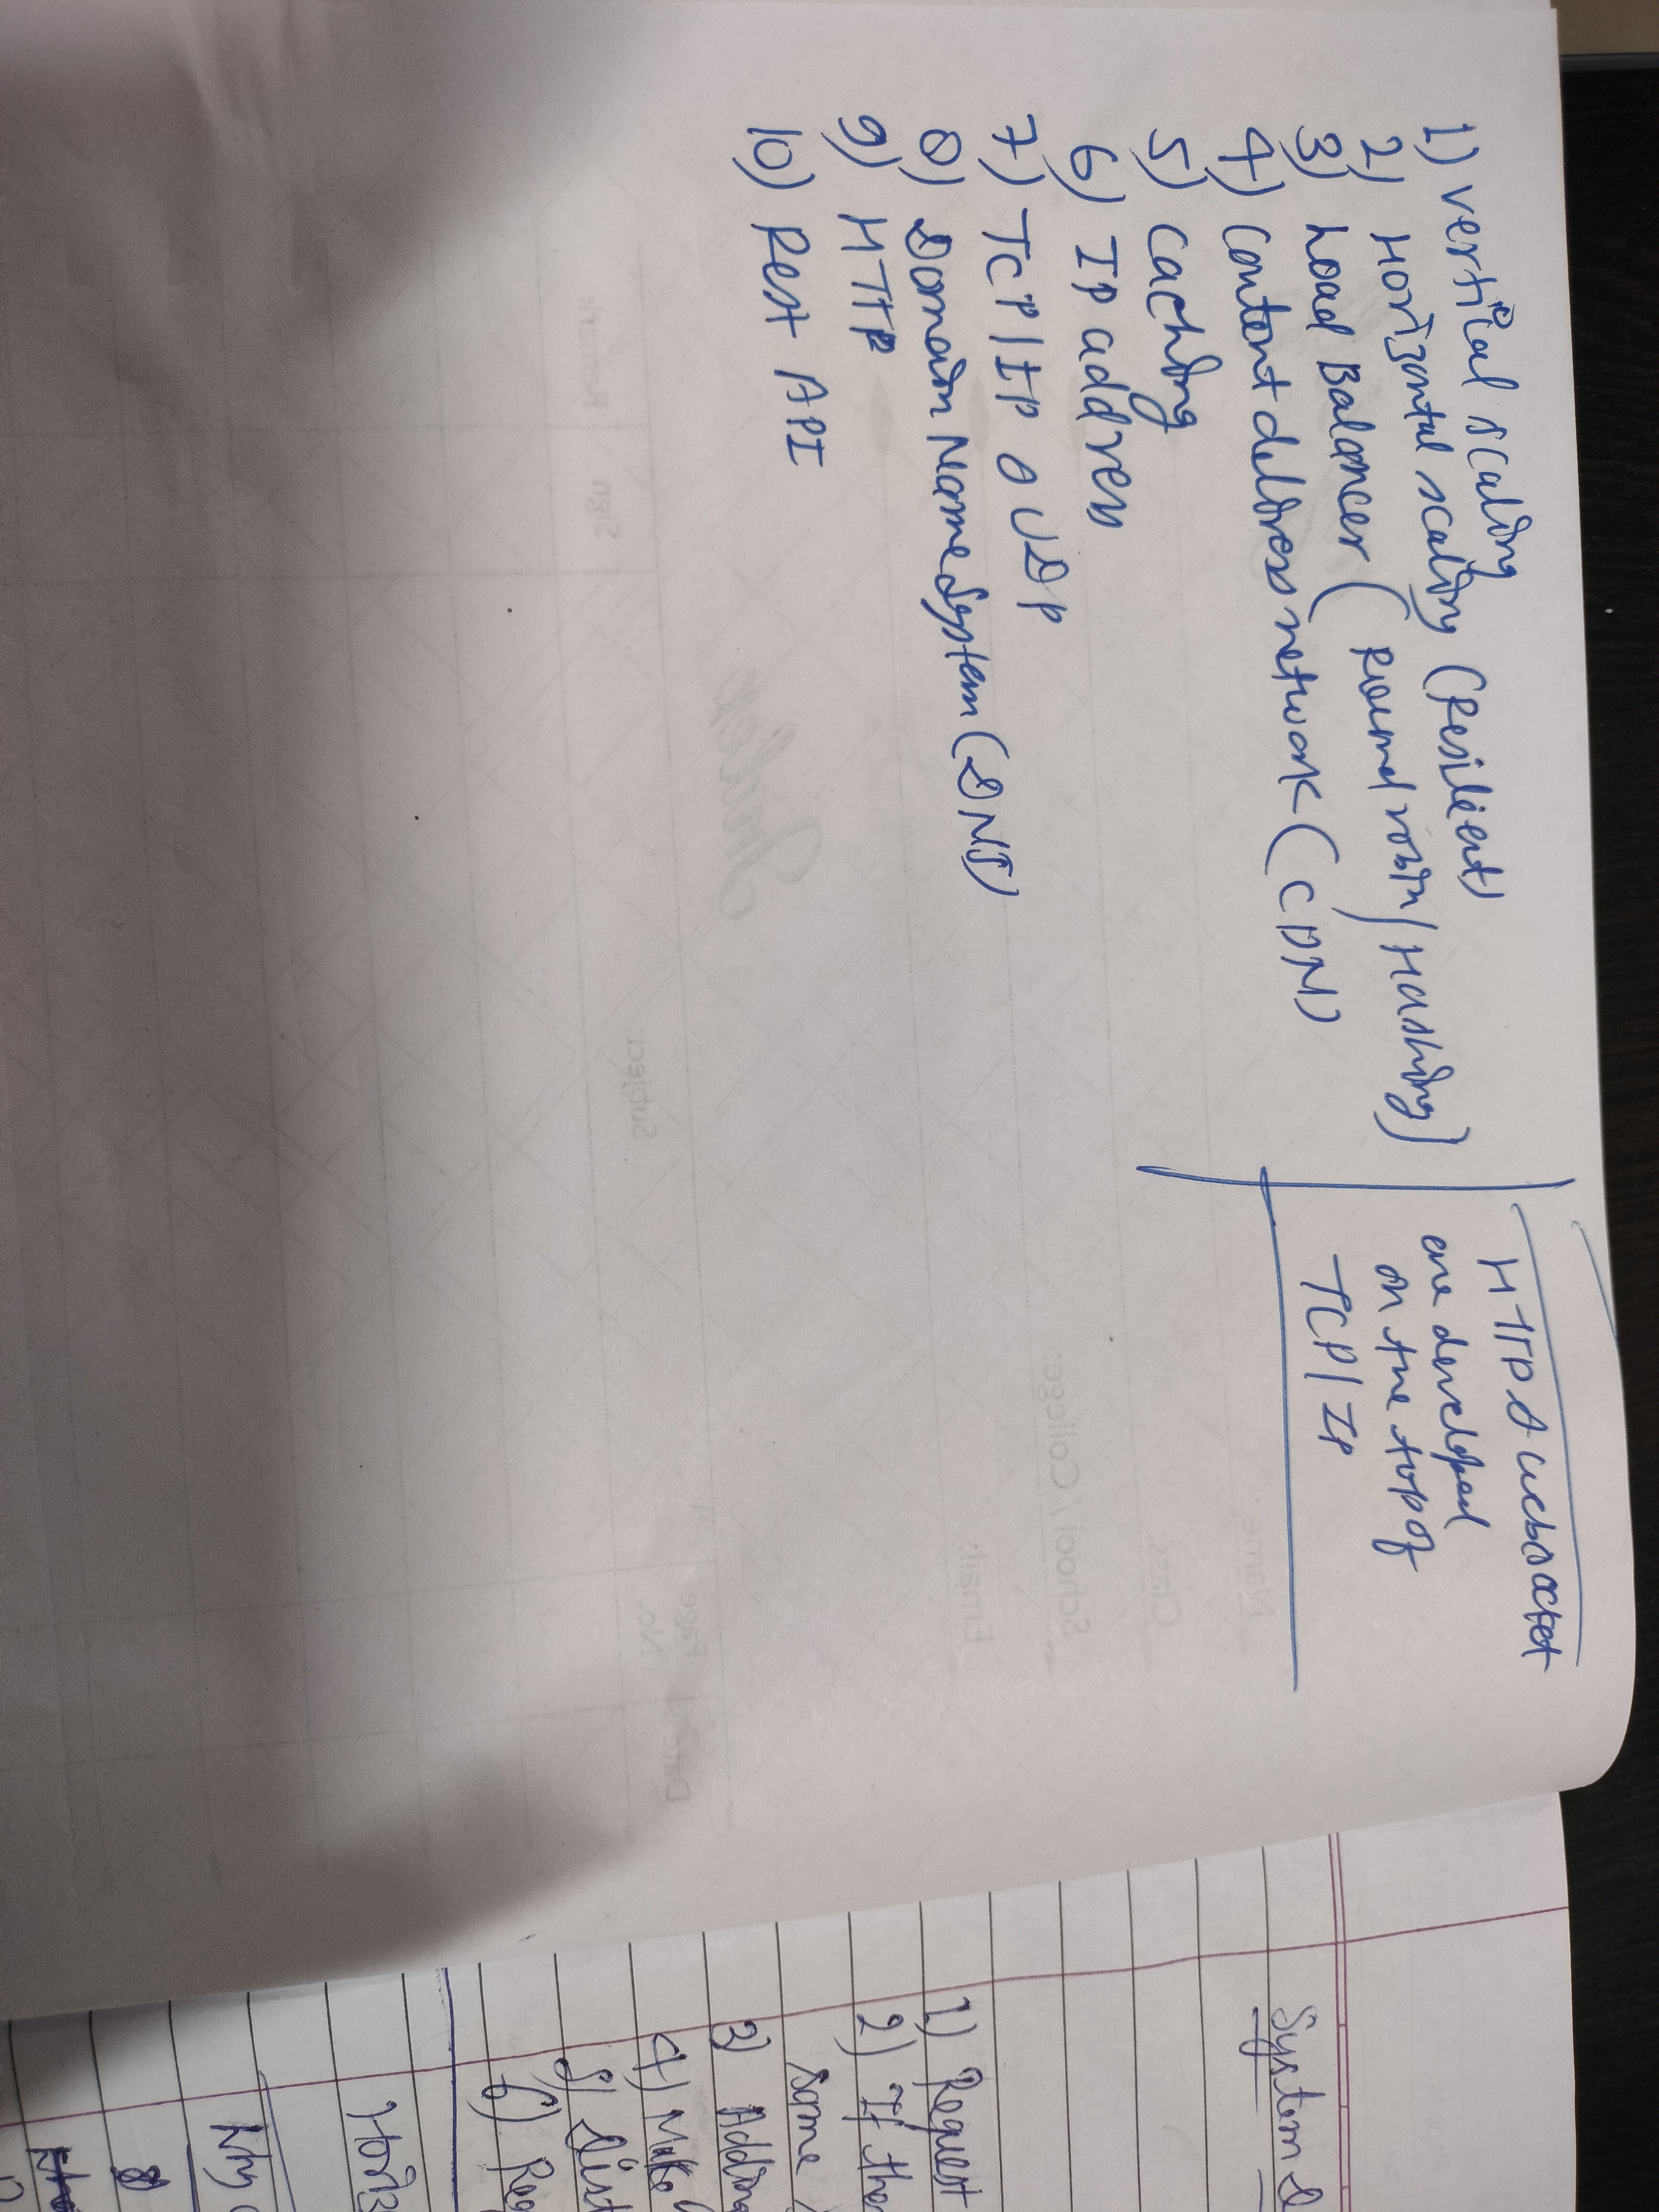 1) vertical scaling
2) Horizontal scaling (Resilient)
3) Load Balancer (Round robin/Hashing)
4) Content deliveress network (CDN)
5) Caching
6) IP address
7) TCP/IP & UDP
8) Domain Name System (DNS)
9) HTTP
10) Rest API
HTTP & websocket
are developed
on the top of
TCP/IP
System
1) Request
2) If the
same
3) Adding
4) Make
5) Dist
6) Req
Horiz
Why
8